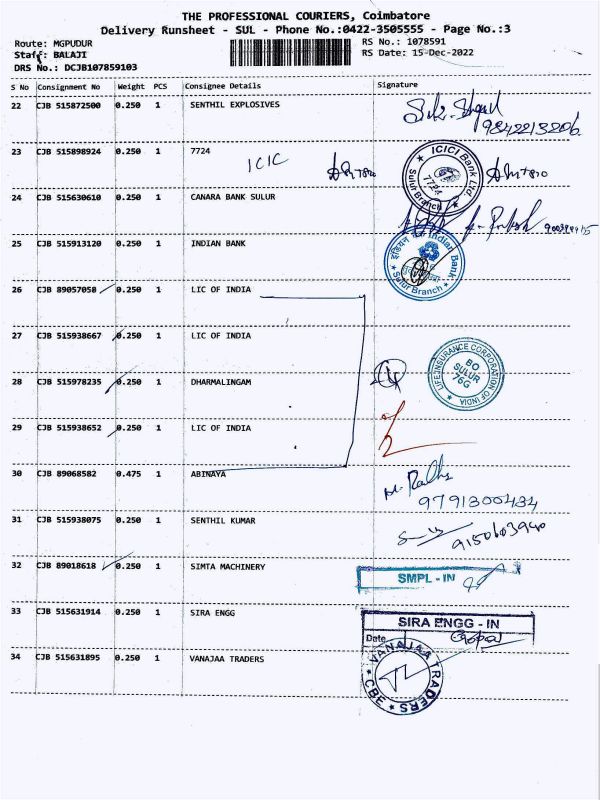 THE PROFESSIONAL COURIERS, Coimbatore
Delivery Runsheet - SUL - Phone No.:0422-3505555 - Page No.:3
Route: MGPUDUR
RS No.: 1078591
Staff: BALAJI
RS Date: 15-Dec-2022
DRS No.: DCJB107859103
S No Consignment No Weight PCS Consignee Details Signature
22 CJB 515872500 0.250 1 SENTHIL EXPLOSIVES
9842213206
23 CJB 515898924 0.250 1 7724
ICIC
ICICI Bank Ltd
7724
Sulur Branch
24 CJB 515630610 0.250 1 CANARA BANK SULUR
25 CJB 515913120 0.250 1 INDIAN BANK
इंडियन बैंक Indian Bank
Sulur Branch
26 CJB 89057058 0.250 1 LIC OF INDIA
27 CJB 515938667 0.250 1 LIC OF INDIA
LIFE INSURANCE CORPORATION OF INDIA
BO
SULUR
76G
28 CJB 515978235 0.250 1 DHARMALINGAM
29 CJB 515938652 0.250 1 LIC OF INDIA
30 CJB 89068582 0.475 1 ABINAYA
9791300434
31 CJB 515938075 0.250 1 SENTHIL KUMAR
9150603940
32 CJB 89018618 0.250 1 SIMTA MACHINERY
SMPL - IN
33 CJB 515631914 0.250 1 SIRA ENGG
SIRA ENGG - IN
Date
34 CJB 515631895 0.250 1 VANAJAA TRADERS
VANAJAA TRADERS
CBE